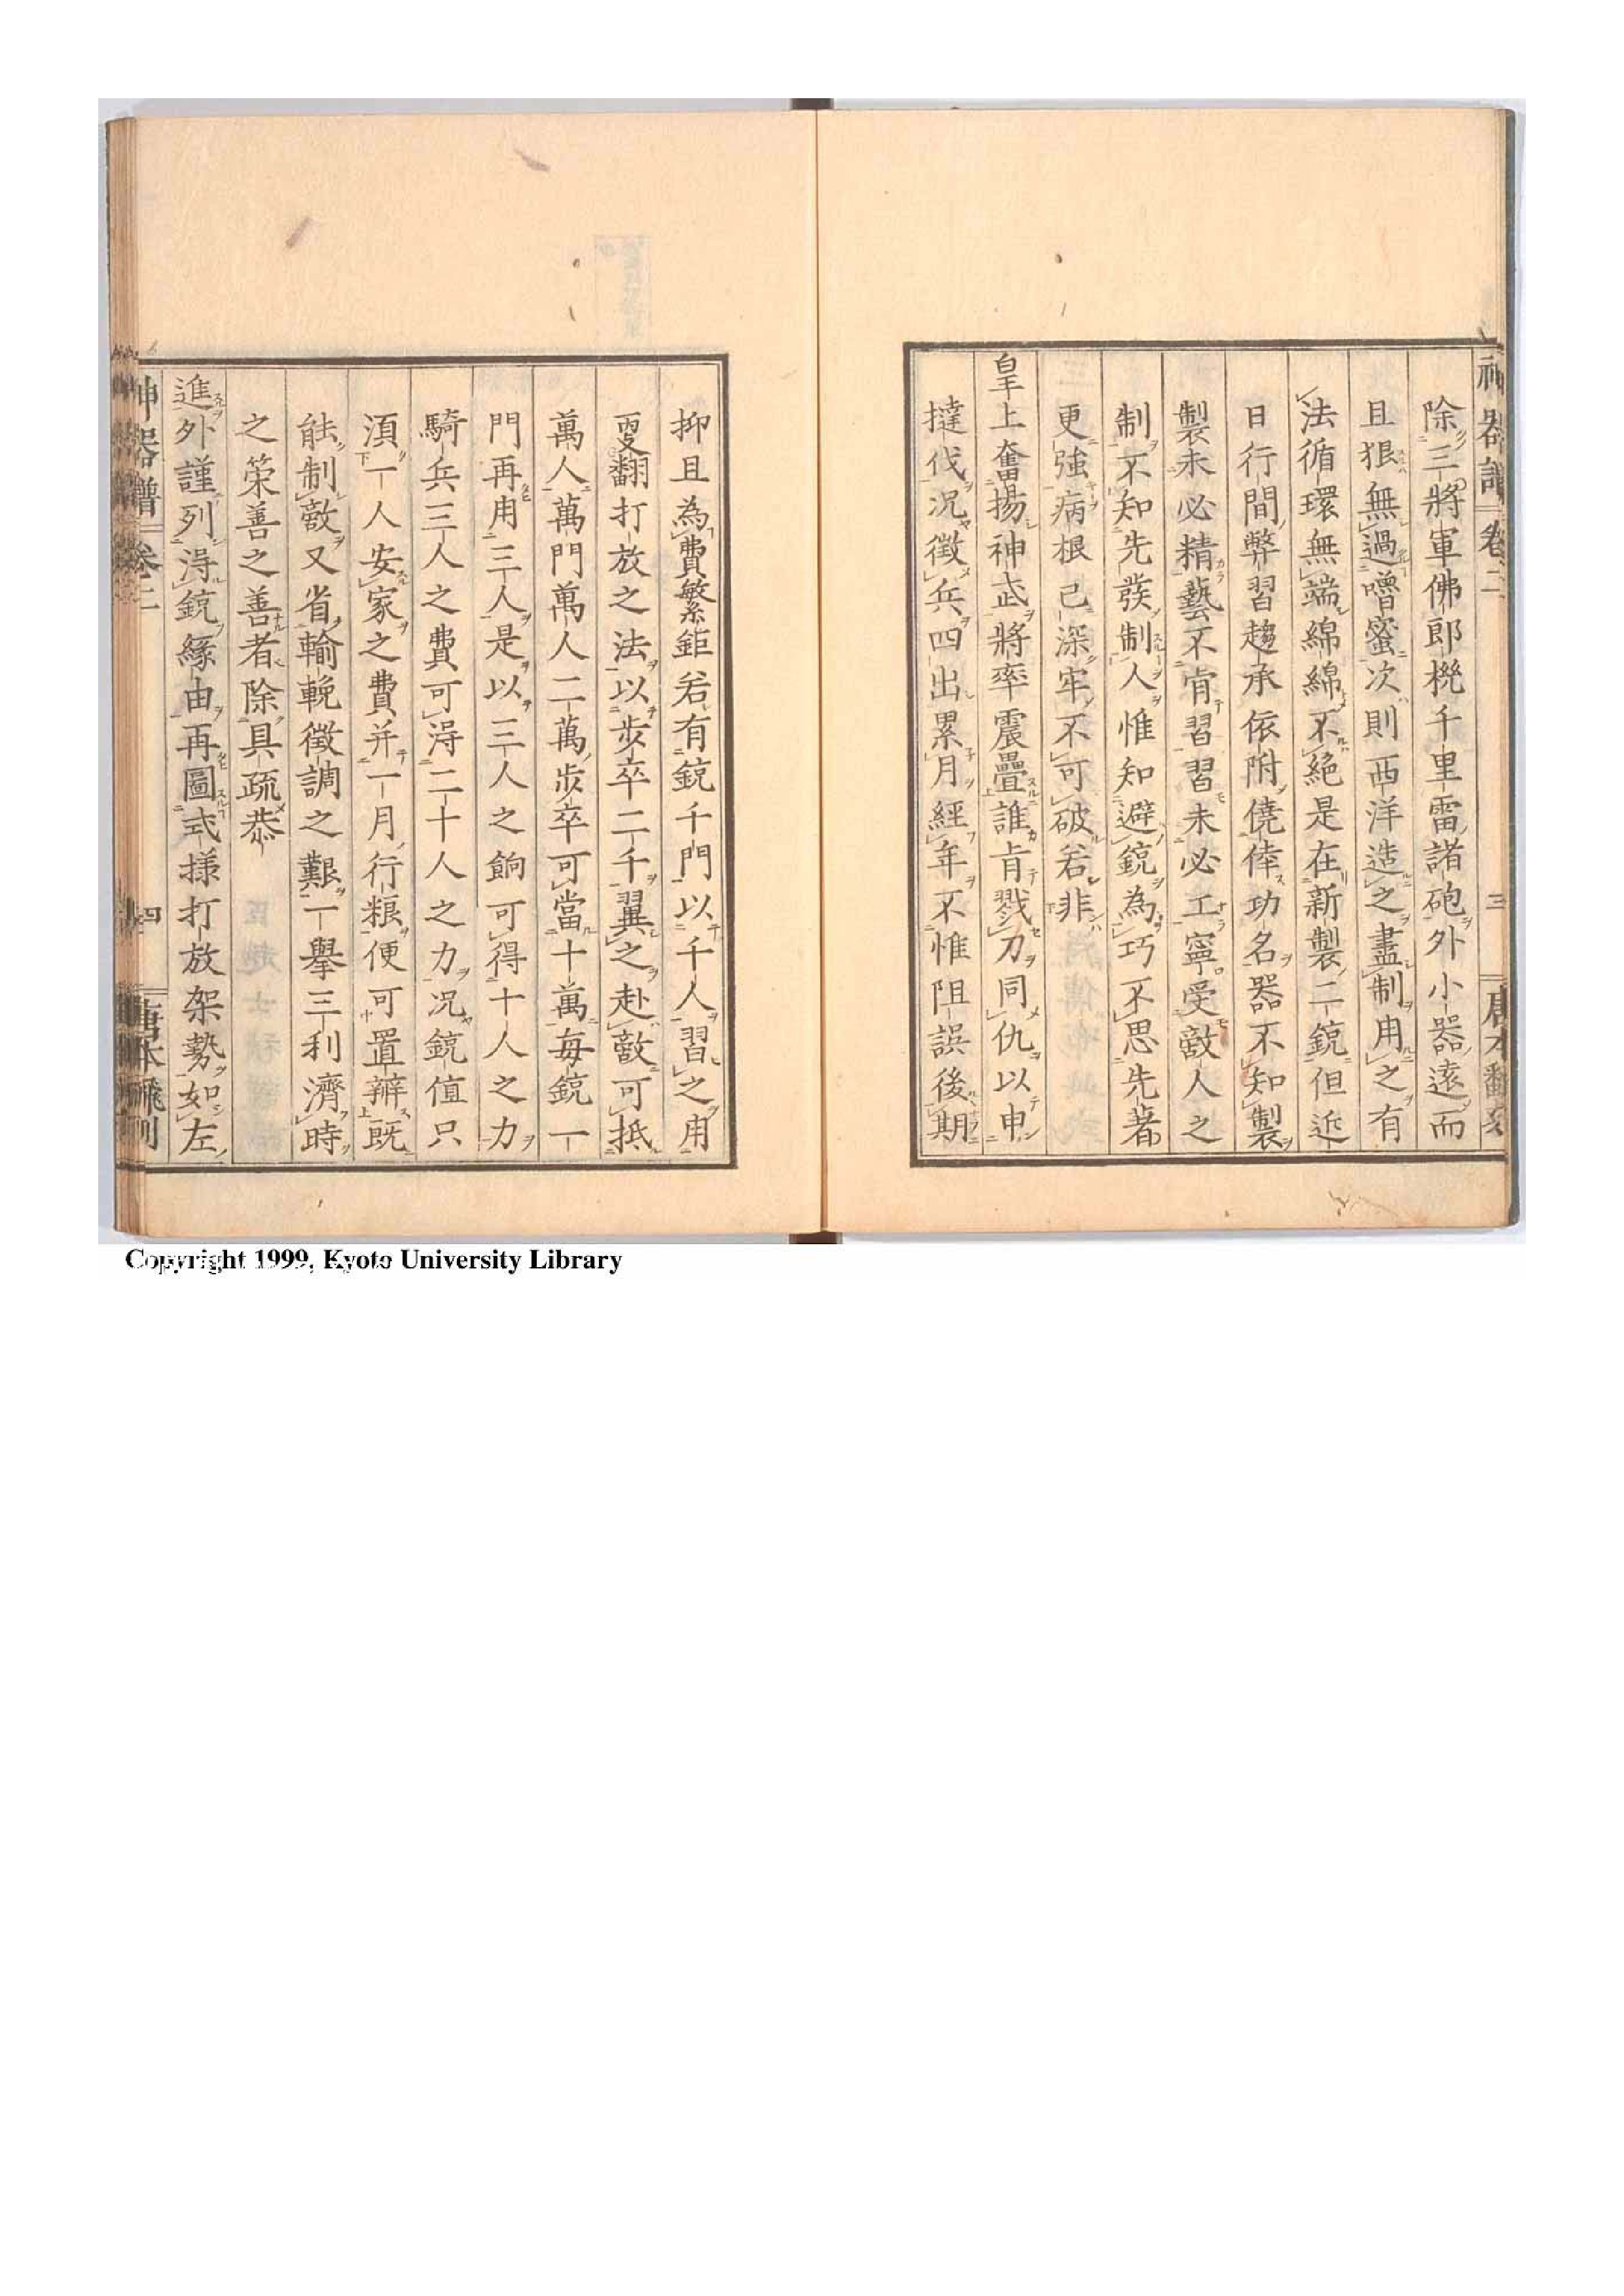 神器譜 卷二 三
除三將軍佛郎機千里雷諸砲外小器遠而
且狠無過嚕蜜次則西洋造之盡制用之有
法循環無端綿綿不絕是在新製二銃但近
日行間弊習趨承依附僥倖功名器不知製
製未必精藝不肯習習未必工寧受敵人之
制不知先發制人惟知避銃為巧不思先著
更強病根已深牢不可破若非
皇上奮揚神武將率震疊誰肯戮力同仇以申
撻伐況徵兵四出累月經年不惟阻誤後期
抑且為費繁鉅若有銃千門以千人習之用
更翻打放之法以步卒二千翼之赴敵可抵
萬人萬門萬人二萬步卒可當十萬每銃一
門再用三人是以三人之餉可得十人之力
騎兵三人之費可得二十人之力況銃值只
須一人安家之費并一月行粮便可置辦既
能制敵又省輸輓徵調之艱一舉三利濟時
之策善之善者除具疏恭
進外謹列得銃緣由再圖式樣打放架勢如左
神器譜 卷二 四
Copyright 1999, Kyoto University Library